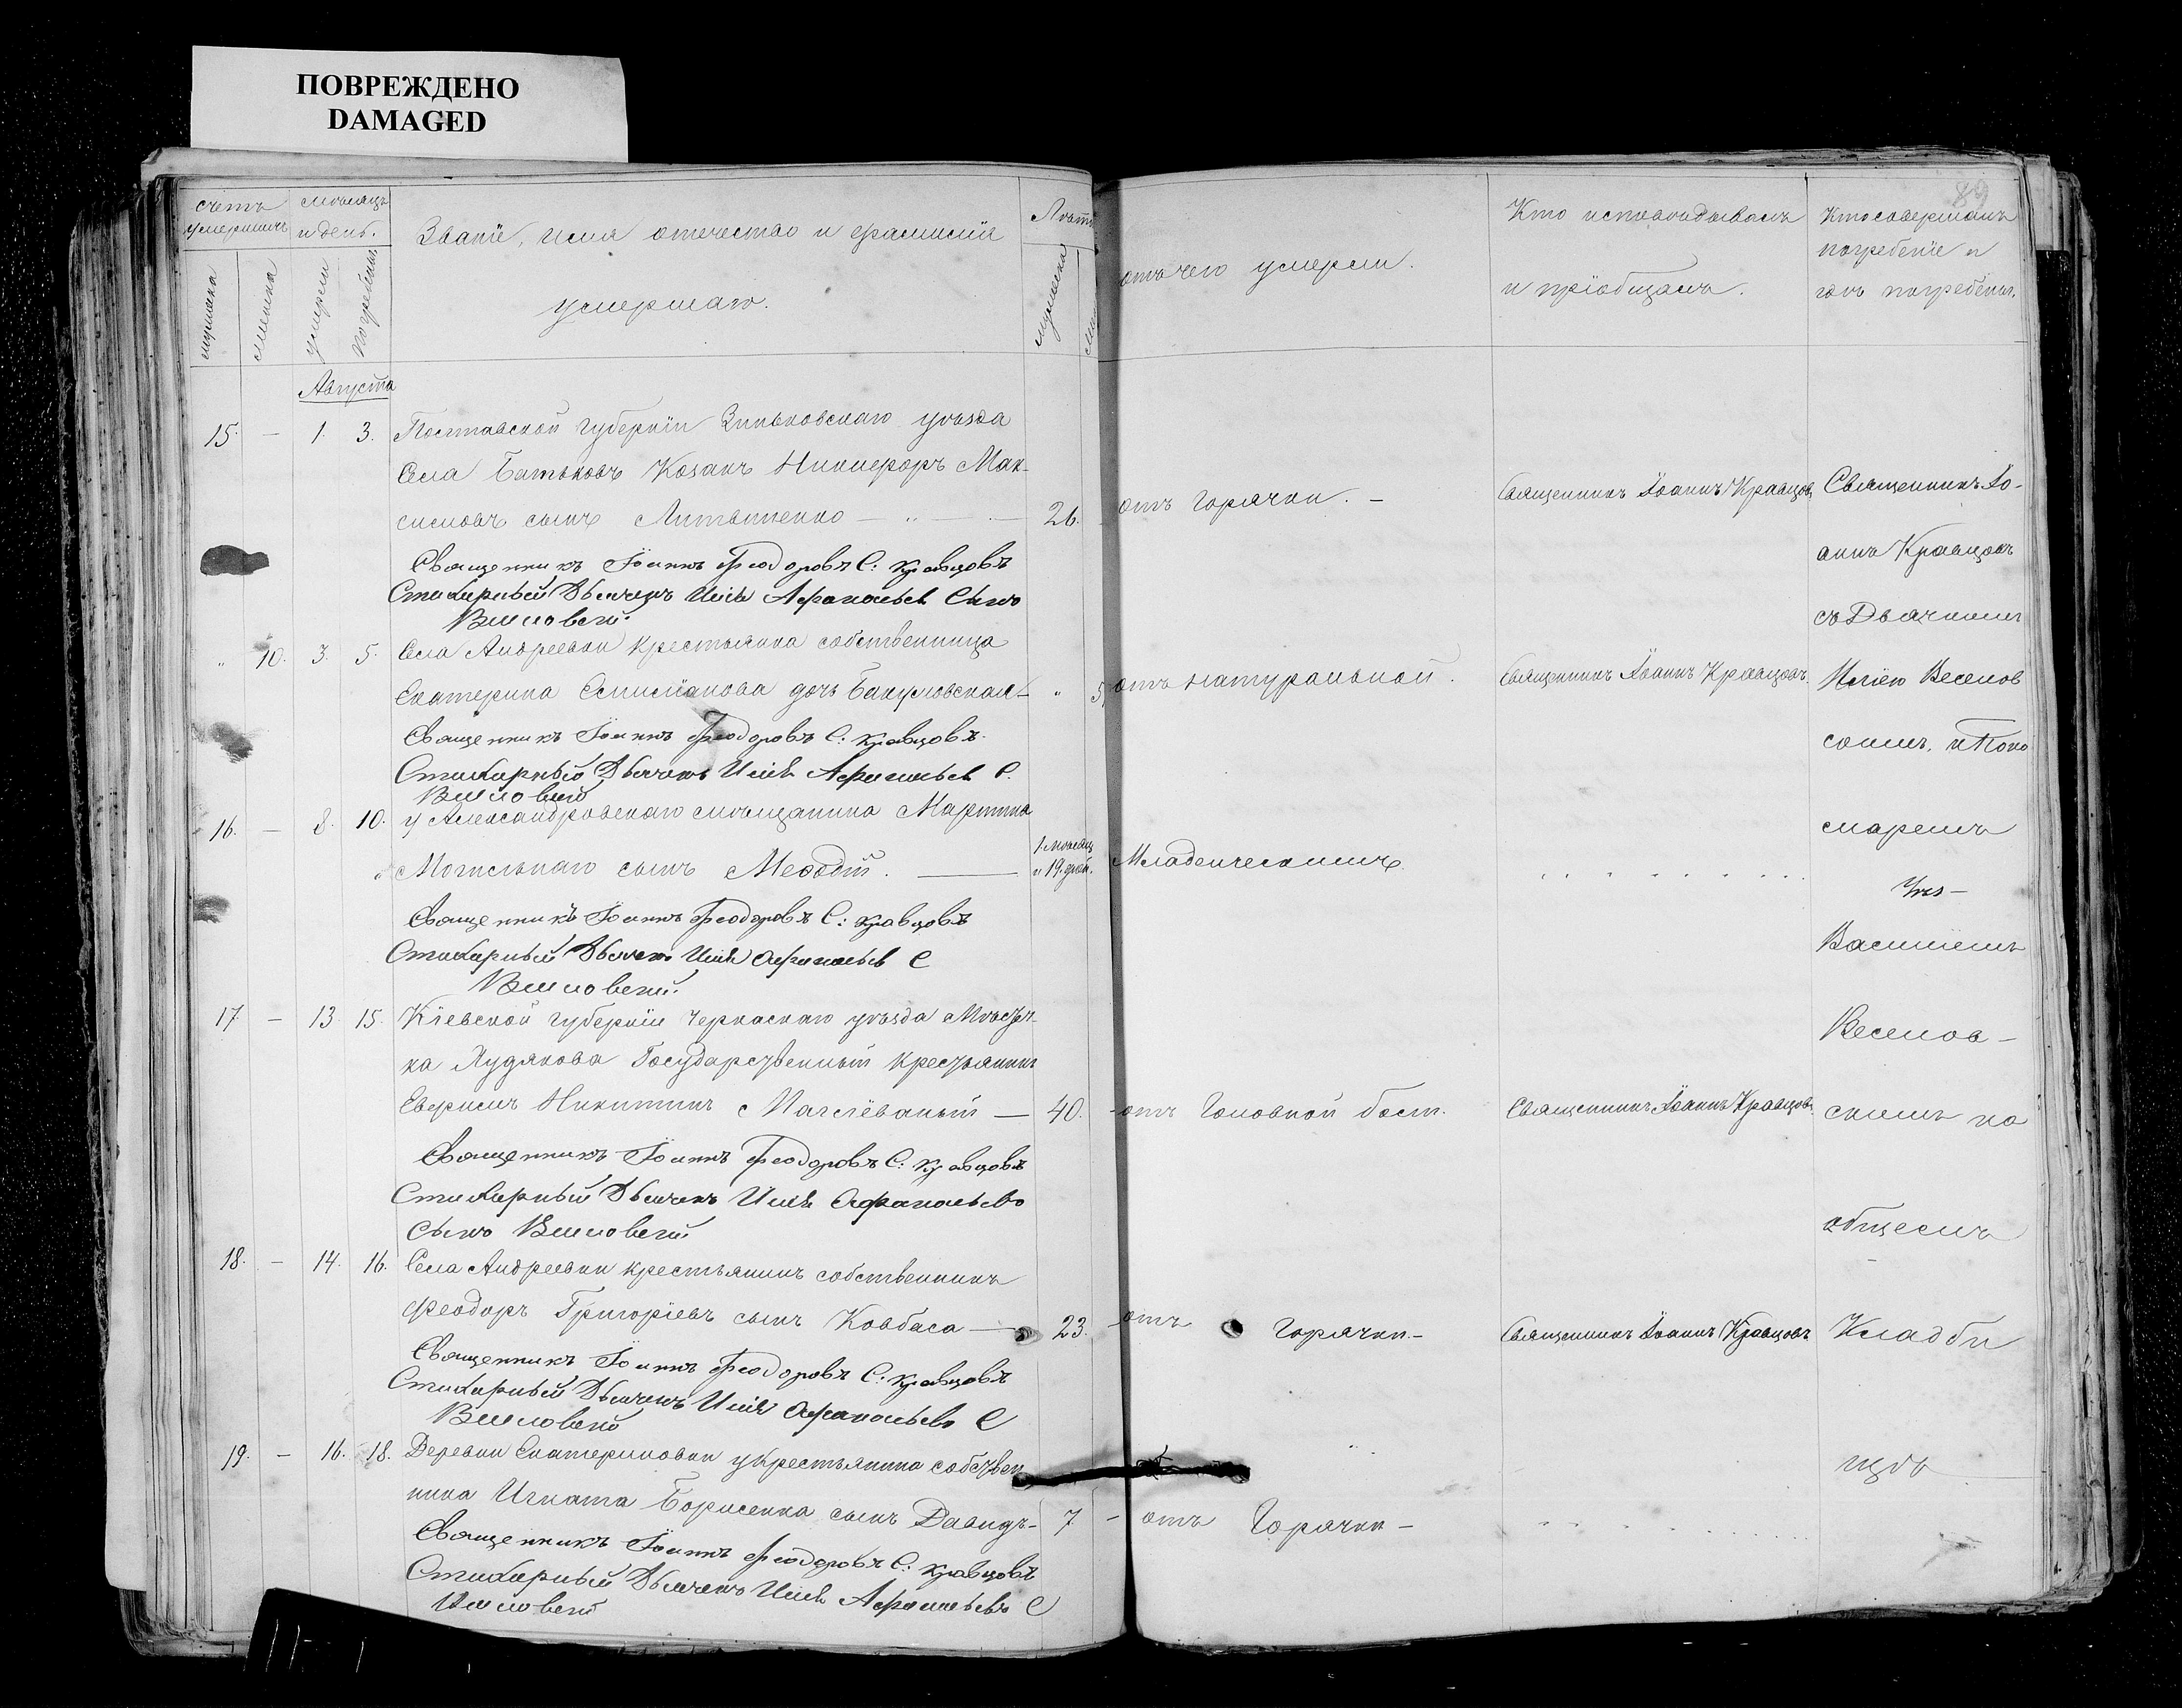 ПОВРЕЖДЕНО
DAMAGED
89
счетъ умершихъ
мѣсяцъ и день.
Званіе, имя отечество и фамилія умершаго.
Лѣта
отъ чего умерли.
Кто исповѣдывалъ и пріобщалъ.
Кто совершалъ погребеніе и гдѣ погребены.
мужеска
женска
умерли
погребены
мужеска
Августа
15. — 1. 3. Полтавской губерніи Зиньковскаго уѣзда
села Батьковъ Козакъ Никифоръ Мак-
симовъ сынъ Литвиненко — 26. отъ горячки. — Священникъ Іоаннъ Кравцовъ Священникъ Іо-
Священникъ Іоаннъ Феодоровъ С: Кравцовъ аннъ Кравцовъ
Стихарный Дьячекъ Илія Афанасьев Сынъ
съ Дьячкомъ
" 10. 3. 5. Села Андреевки крестьянка собственница
Екатерина дочь — " 5 отъ натуральной. Священникъ Іоаннъ Кравцовъ. Иліею Веселов
Священникъ Іоаннъ Феодоровъ С: Кравцовъ. скимъ, и Поно
Стихарный Дьячекъ Илія Афанасьев С.
16. — 8. 10. у Александровскаго мѣщанина Мартина
Могильнаго сынъ Меѳодій. — 1 мѣсяц и 19 дней. Младенческимъ маремъ
Священникъ Іоаннъ Феодоровъ С: Кравцовъ
Стихарный Дьячекъ Илія Афанасьев С Василіемъ
17. — 13. 15. Кіевской губерніи Черкаскаго уѣзда Мѣстеч- Веселов-
ка Худякова Государственный крестьянинъ
Никитинъ — 40. отъ Головной бол. Священникъ Іоаннъ Кравцовъ. скимъ на
Священникъ Іоаннъ Феодоровъ С: Кравцовъ
Стихарный Дьячекъ Илія Афанасьевъ
Сынъ
общемъ
18. — 14. 16. Села Андреевки крестьянинъ собственникъ
Феодоръ Григоріевъ сынъ Ковбаса — 23. отъ горячки — Священникъ Іоаннъ Кравцовъ Кладби
Священникъ Іоаннъ Феодоровъ С: Кравцовъ
Стихарный Дьячекъ Илія Афанасьевъ С
19. — 16. 18. Деревни Екатериновки у крестьянина собствен
щѣ
ника Игната Борисенка сынъ Давидъ — 7. — отъ Горячки —
Священникъ Іоаннъ Феодоровъ С: Кравцовъ
Стихарный Дьячекъ Илія Афанасьевъ С